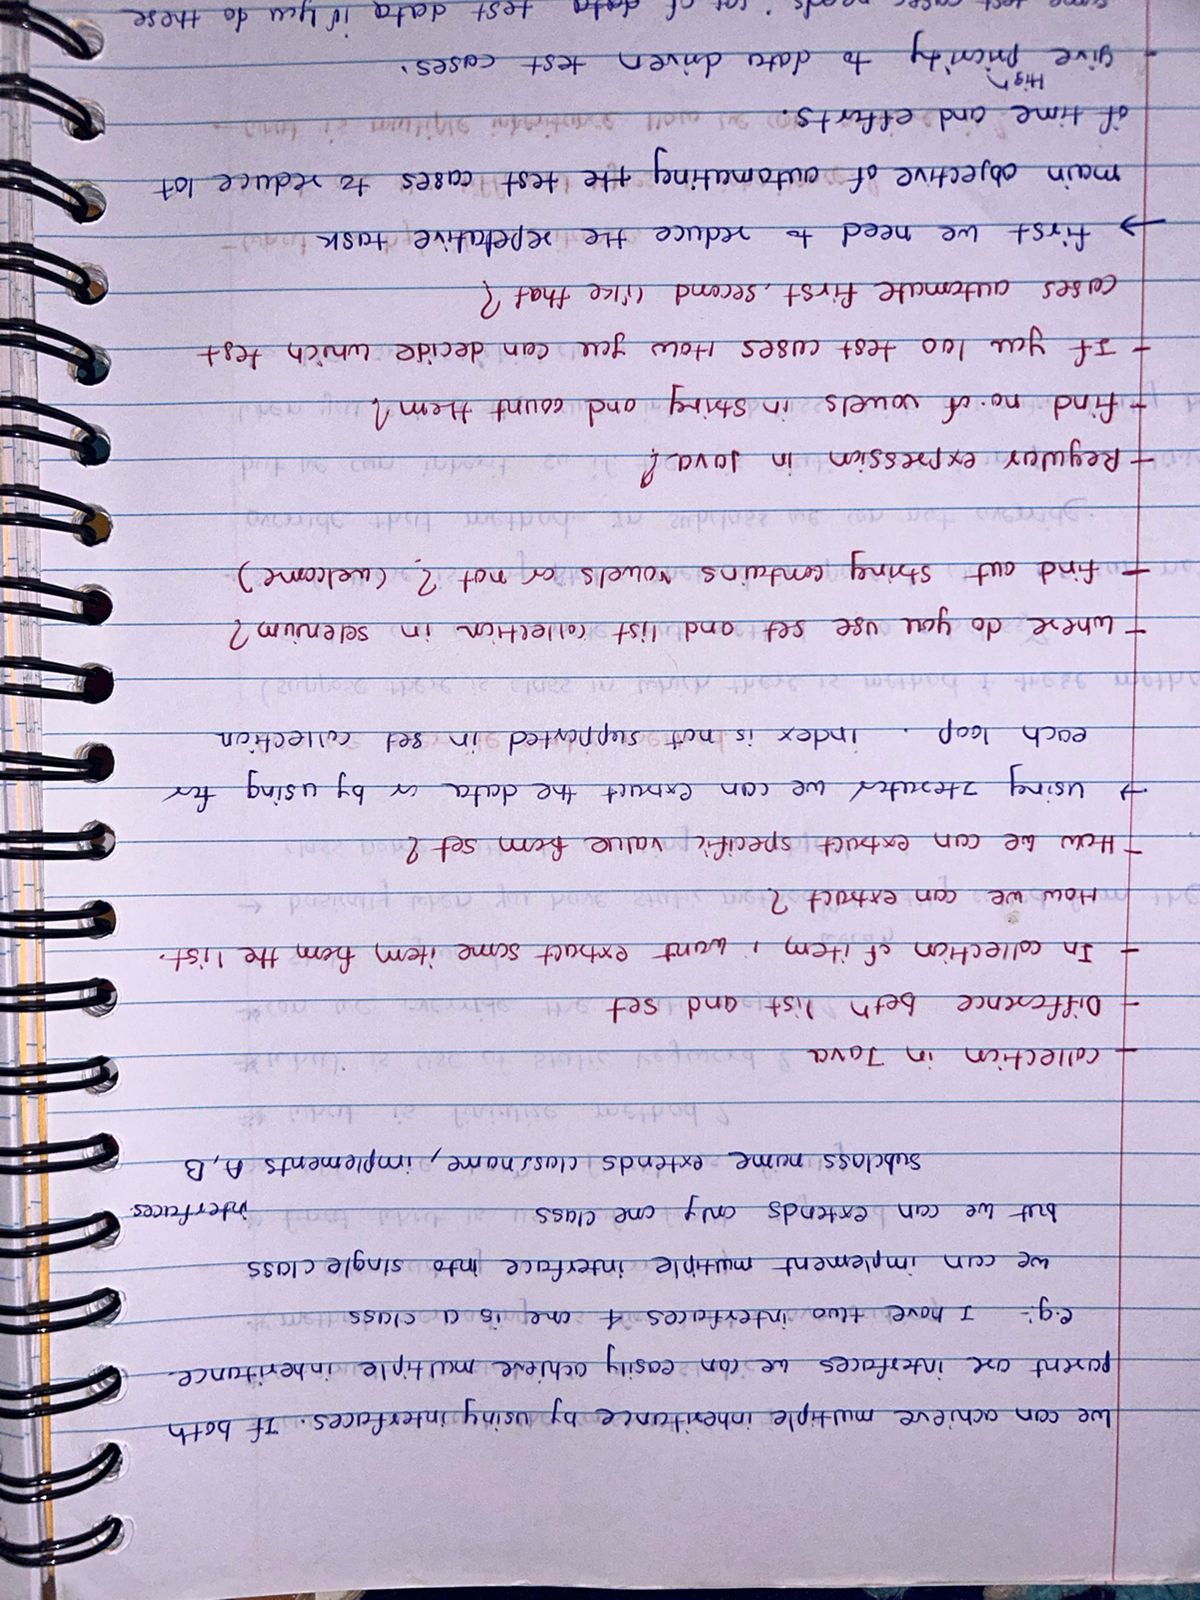 we can achieve multiple inheritance by using interfaces. If both
parent are interfaces we can easily achieve multiple inheritance.
e.g:- I have two interfaces & one is a class
we can implement multiple interface into single class
but we can extends only one class
interfaces
subclass name extends classname, implements A, B
- collection in Java
- Difference betn list and set
- In collection of item, i want extract some item from the list.
How we can extract?
- How we can extract specific value from set?
→ using Iterator we can extract the data or by using for
each loop. index is not supported in set collection
- where do you use set and list collection in selenium?
- find out string contains vowels or not? (welcome)
- Regular expression in Java?
- find no. of vowels in string and count them?
- If you 100 test cases How you can decide which test
cases automate first, second like that?
→ first we need to reduce the repetative task
main objective of automating the test cases to reduce lot
of time and efforts.
High
- give priority to data driven test cases.
some test cases needs lot of data test data if you do these